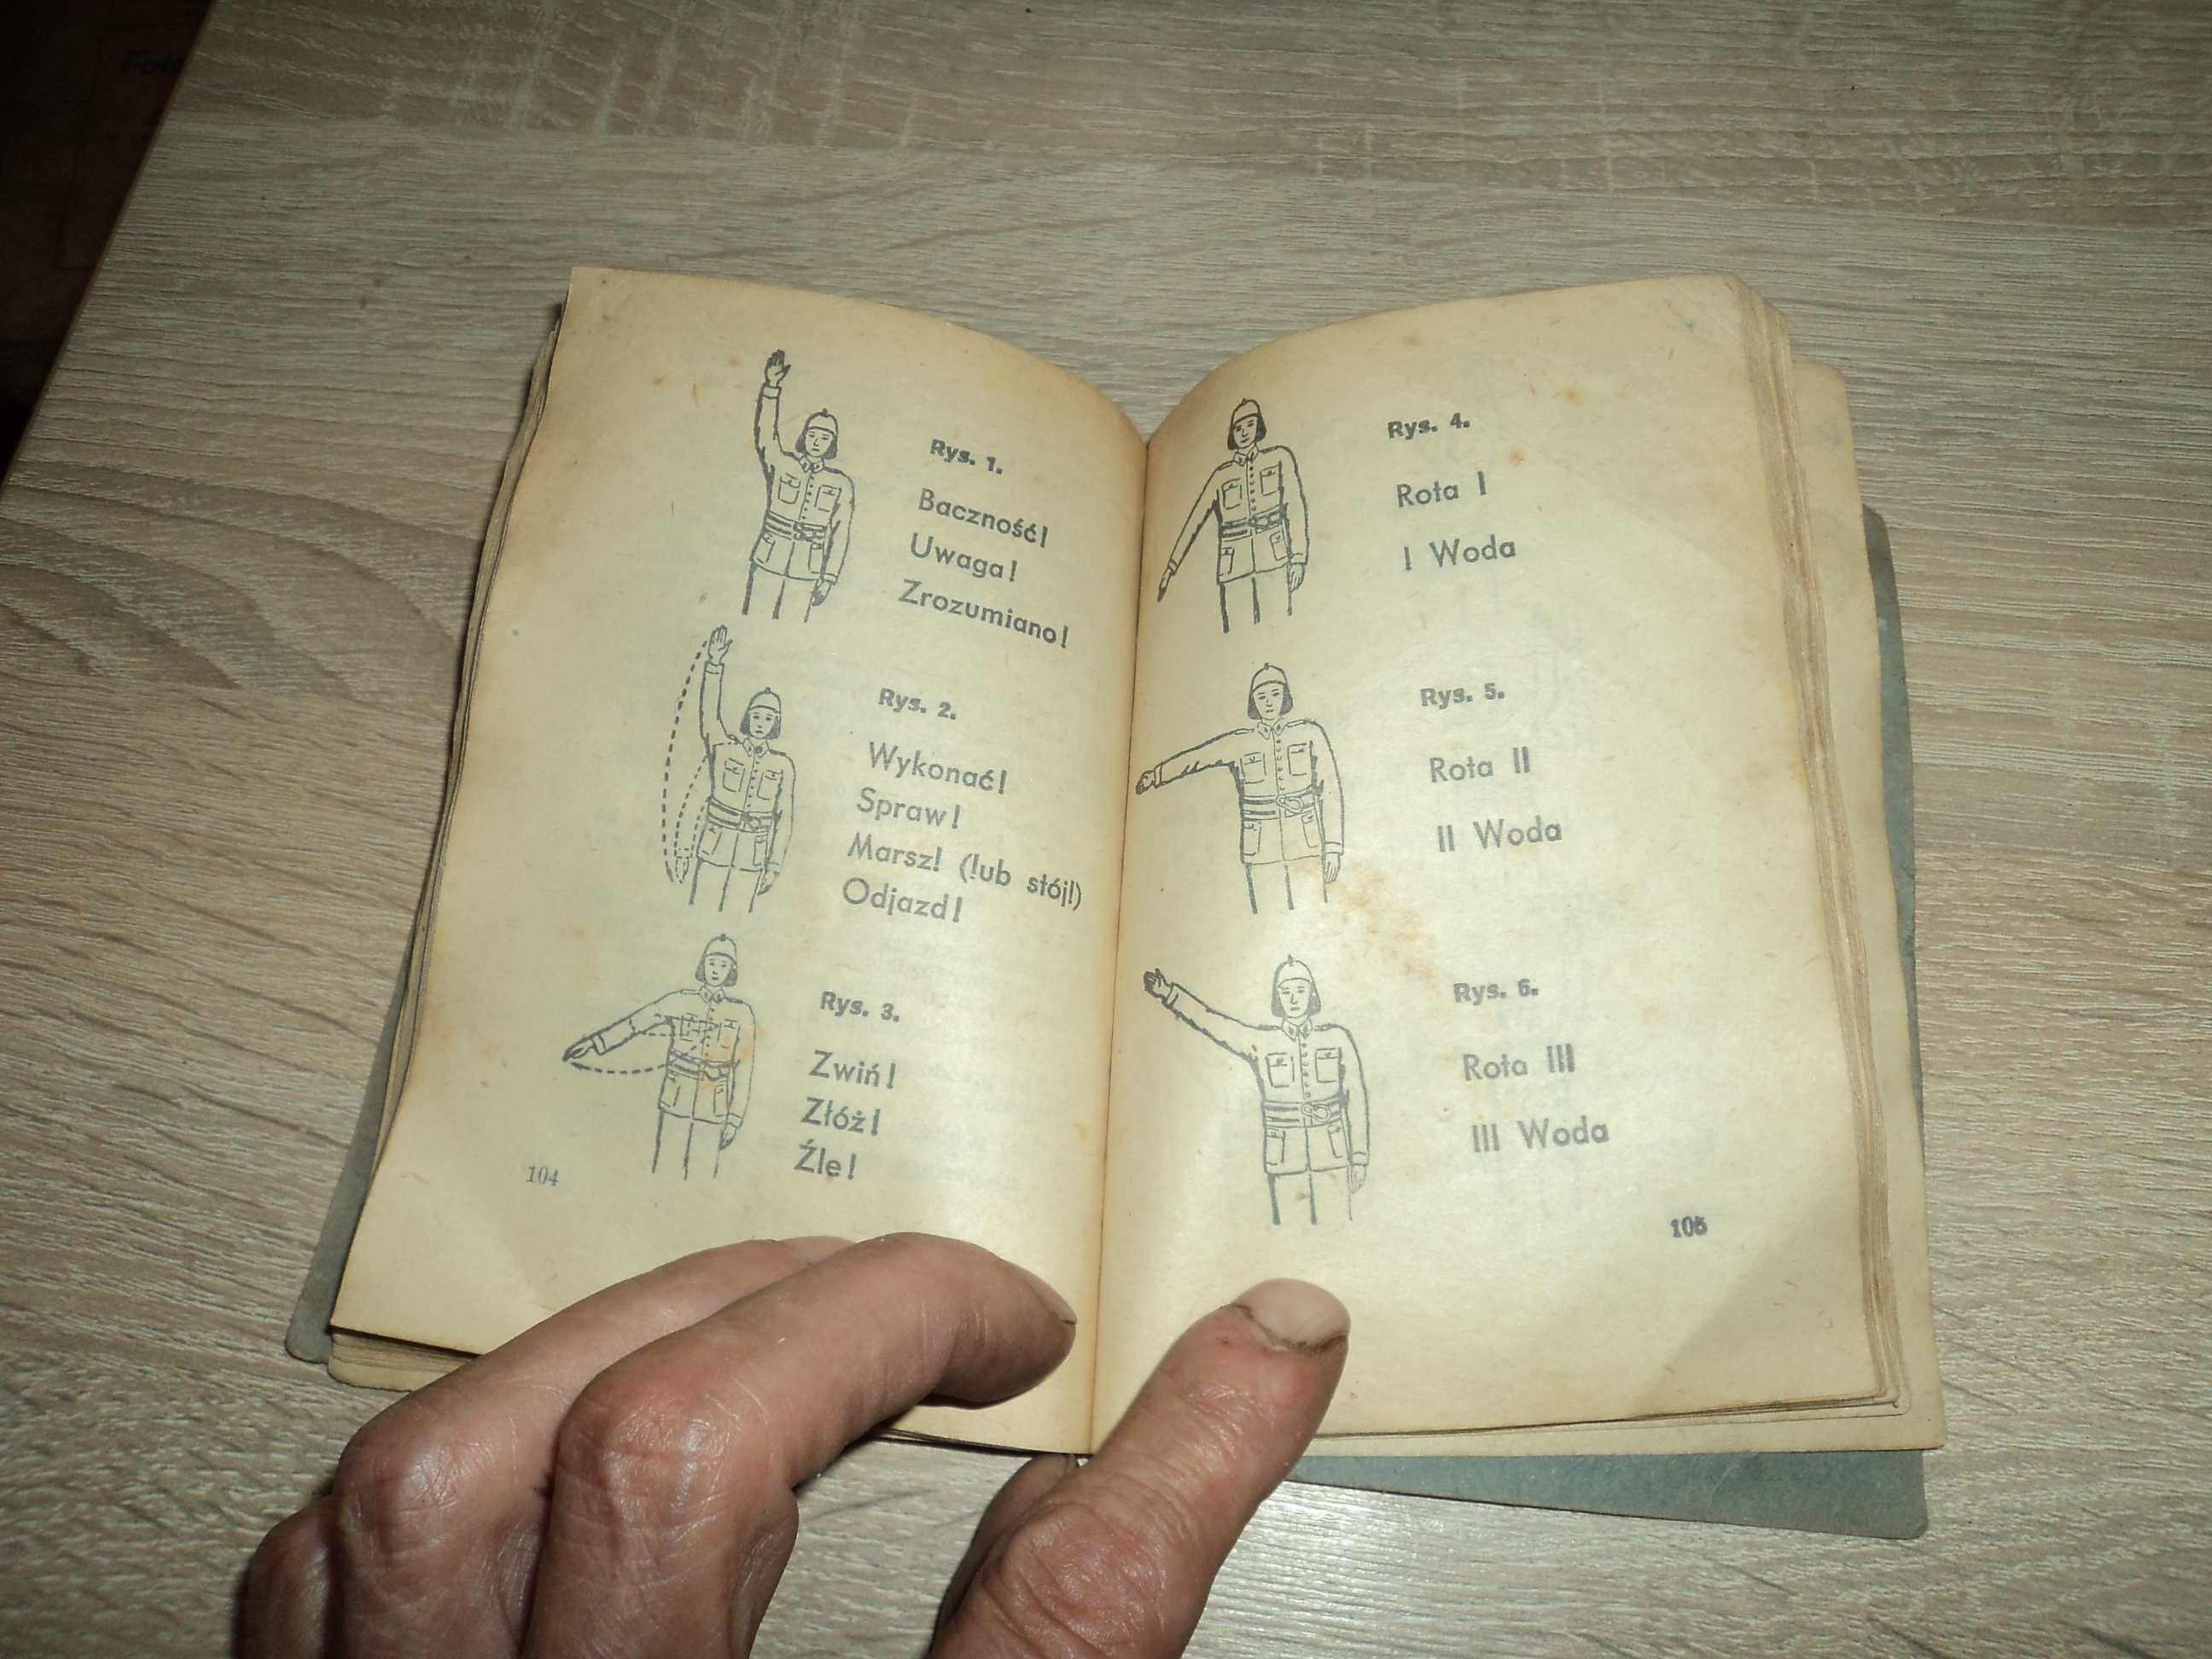 Rys. 1.
Baczność!
Uwaga!
Zrozumiano!
Rys. 2.
Wykonać!
Spraw!
Marsz! (lub stój!)
Odjazd!
Rys. 3.
Zwiń!
Złóż!
Źle!
104
Rys. 4.
Rota I
I Woda
Rys. 5.
Rota II
II Woda
Rys. 6.
Rota III
III Woda
105